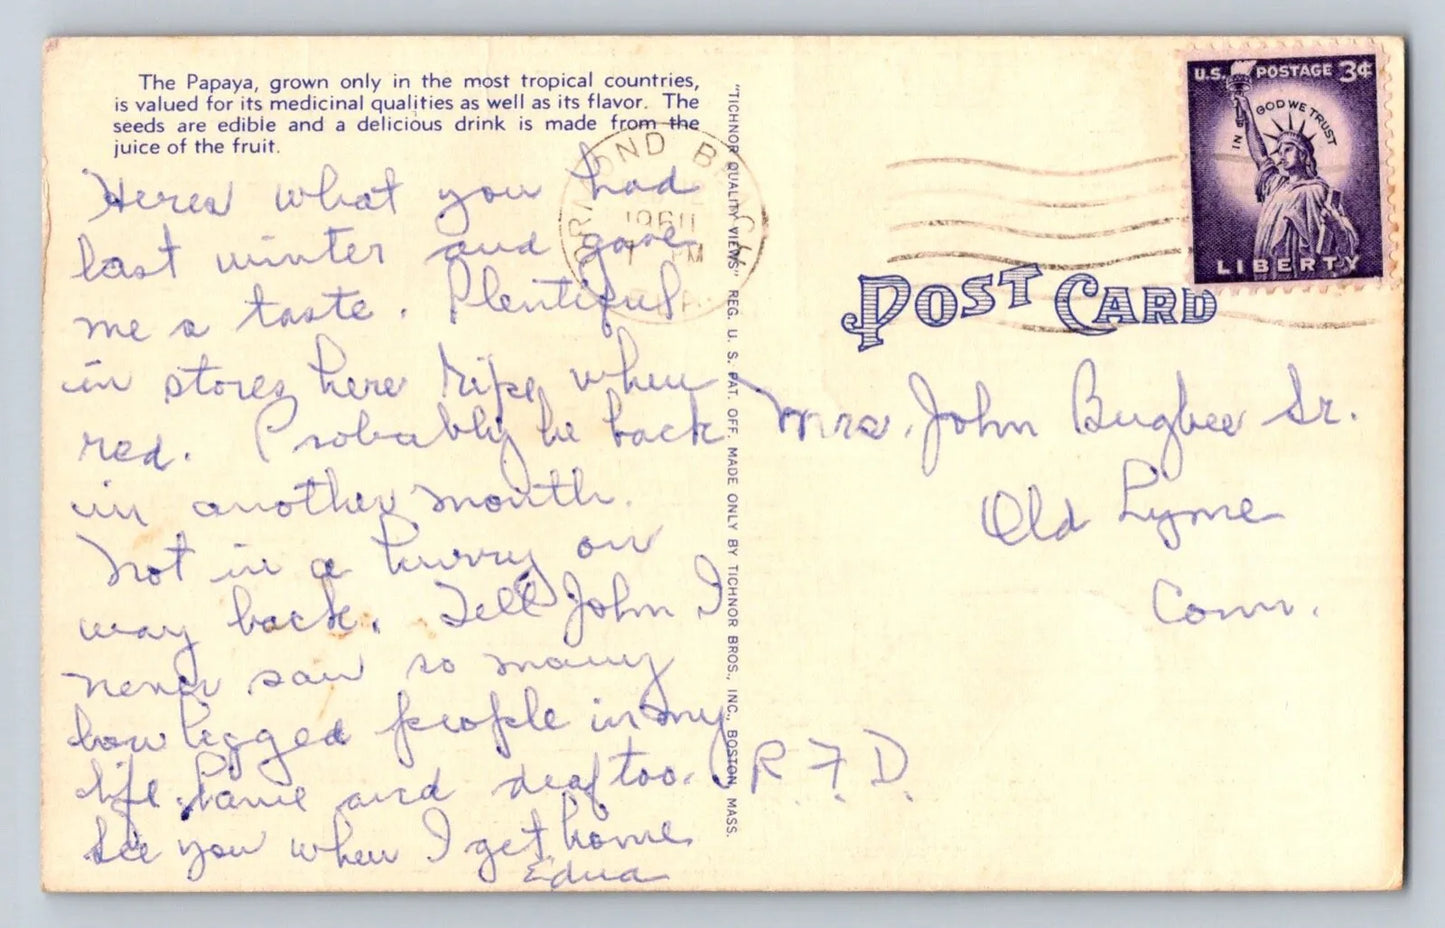 The Papaya, grown only in the most tropical countries,
is valued for its medicinal qualities as well as its flavor. The
seeds are edible and a delicious drink is made from the
juice of the fruit.
Heres what you had
last winter and gave
me a taste. Plentiful
in stores here Ripe when
red. Probably be back
in another month.
Not in a hurry on
way back. Tell John I
never saw so many
bow legged people in my
life. Lame and deaf too.
See you when I get home
Edna
"TICHNOR QUALITY VIEWS" REG. U. S. PAT. OFF. MADE ONLY BY TICHNOR BROS., INC., BOSTON, MASS.
ORMOND BEACH
PM
U.S. POSTAGE 3¢
IN GOD WE TRUST
LIBERTY
POST CARD
Mrs. John Bugbee Sr.
Old Lyme
Conn.
R.F.D.